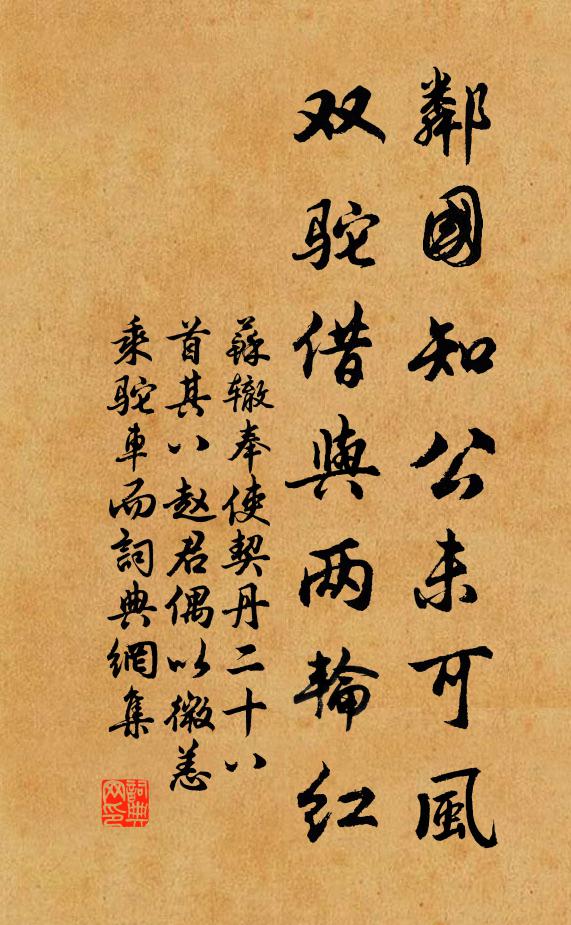 鄰國知公未可風
双驼借與两輪紅
蘇辙奉使契丹二十八
首其八赵君偶以微恙
乘驼車而詞典網集
詞典网印